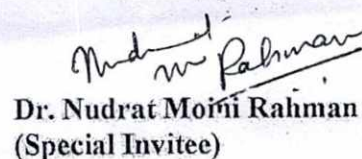 Rahman
Dr. Nudrat Moini Rahman
(Special Invitee)